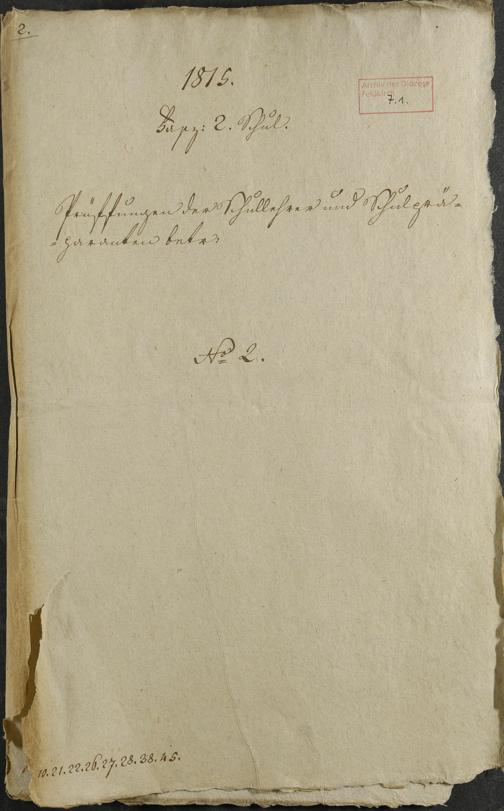 2.
1815.
Archiv der Diözese
Feldkirch
7.1.
Fasz: 2. Schul.
Prüffungen der Schullehrer und Schulprä-
-paranten betr:
No 2.
10.21.22.26.27.28.38.45.